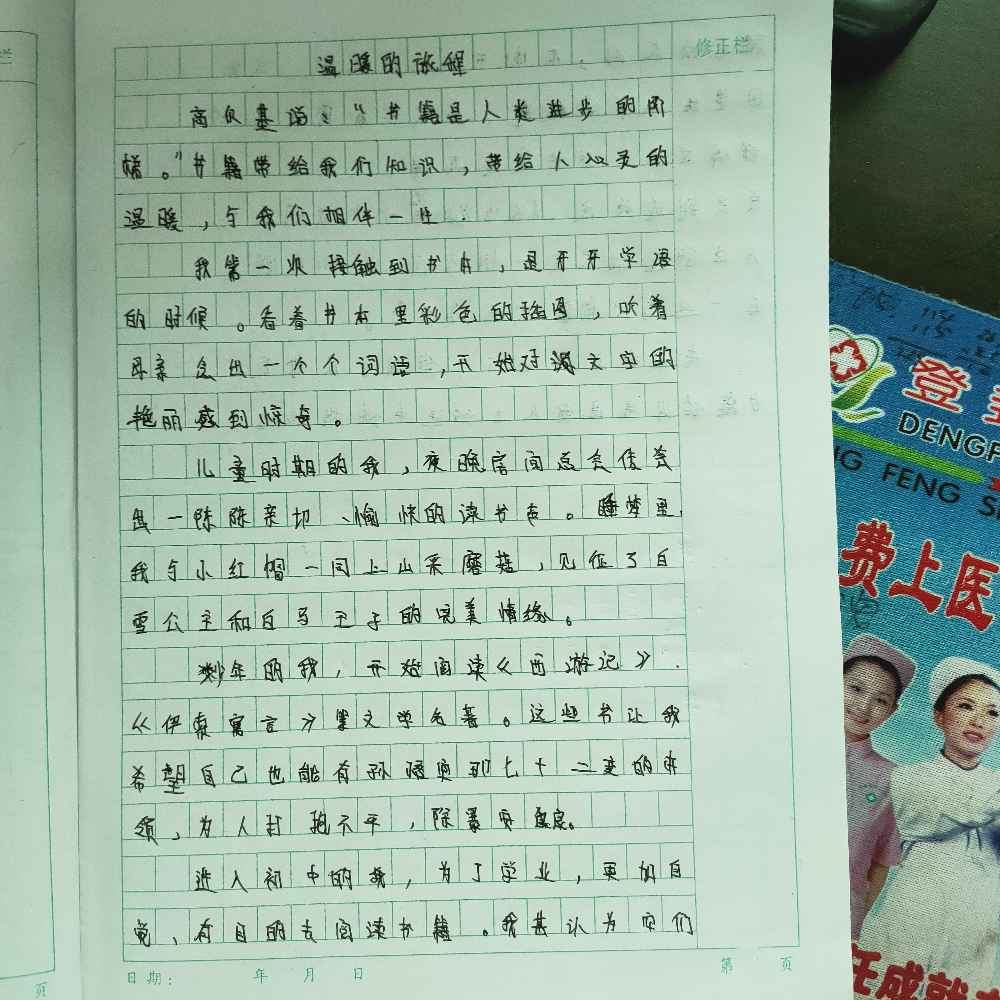 修正栏
温暖的旅程
高贝基说："书籍是人类进步的阶
梯。"书籍带给我们知识，带给人心灵的
温暖，与我们相伴一生.
我第一次接触到书本，是牙牙学语
的时候。看着书本里彩色的插图，听着
母亲念出一个个词语，开始对文字的
艳丽感到惊奇。
儿童时期的我，夜晚房间总会传
出一陈陈亲切、愉快的读书声。睡梦里，
我与小红帽一同上山采磨菇，见征了白
雪公主和白马王子的完美情缘。
少年的我，开始阅读《西游记》.
《伊索寓言》等文学名著。这些书让我
希望自己也能有孙悟空那七十二变的本
领，为人打抱不平，除暴安良。
进入初中的我，为了学业，更加自
觉、有目的去阅读书籍。我甚认为它们
日期： 年 月 日
第 页
页
登
DENGF
NG FENG S
费上医
任成就